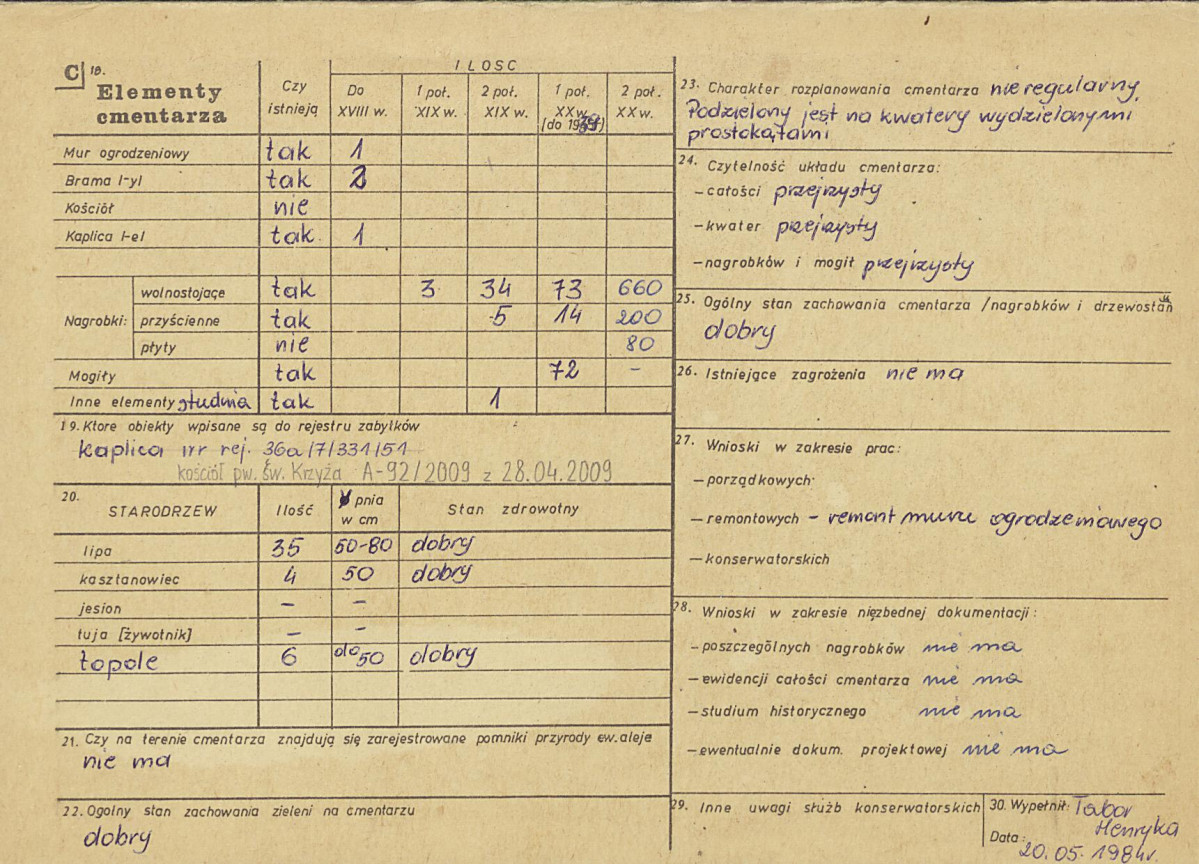 C 18.
Elementy cmentarza
Czy istnieją
ILOSC
Do XVIII w.
1 poł. XIX w.
2 poł. XIX w.
1 poł. XX w. [do 1939]
2 poł. XX w.
Mur ogrodzeniowy tak 1
Brama /-y/ tak 2
Kościół nie
Kaplica /-e/ tak 1
Nagrobki:
wolnostojące tak 3 34 73 660
przyścienne tak 5 14 200
płyty nie 80
Mogiły tak 72 -
Inne elementy studnia tak 1
19. Ktore obiekty wpisane są do rejestru zabytków
kaplica nr rej. 36a/7/331/51
kościół pw. św. Krzyża A-92/2009 z 28.04.2009
20. STARODRZEW Ilość pnia w cm Stan zdrowotny
lipa 35 50-80 dobry
kasztanowiec 4 50 dobry
jesion - -
tuja [żywotnik] - -
topole 6 do 50 dobry
21. Czy na terenie cmentarza znajdują się zarejestrowane pomniki przyrody ew. aleje
nie ma
22. Ogolny stan zachowania zieleni na cmentarzu
dobry
23. Charakter rozplanowania cmentarza nieregularny.
Podzielony jest na kwatery wydzielonymi
prostokątami
24. Czytelność układu cmentarza:
- całości przejrzysty
- kwater przejrzysty
- nagrobków i mogił przejrzysty
25. Ogólny stan zachowania cmentarza /nagrobków i drzewostan
dobry
26. Istniejące zagrożenia nie ma
27. Wnioski w zakresie prac:
- porządkowych
- remontowych - remont muru ogrodzeniowego
- konserwatorskich
28. Wnioski w zakresie nięzbednej dokumentacji:
- poszczególnych nagrobków nie ma
- ewidencji całości cmentarza nie ma
- studium historycznego nie ma
- ewentualnie dokum. projektowej nie ma
29. Inne uwagi służb konserwatorskich
30. Wypełnił: Tabor
Henryka
Data: 20.05.1984r.